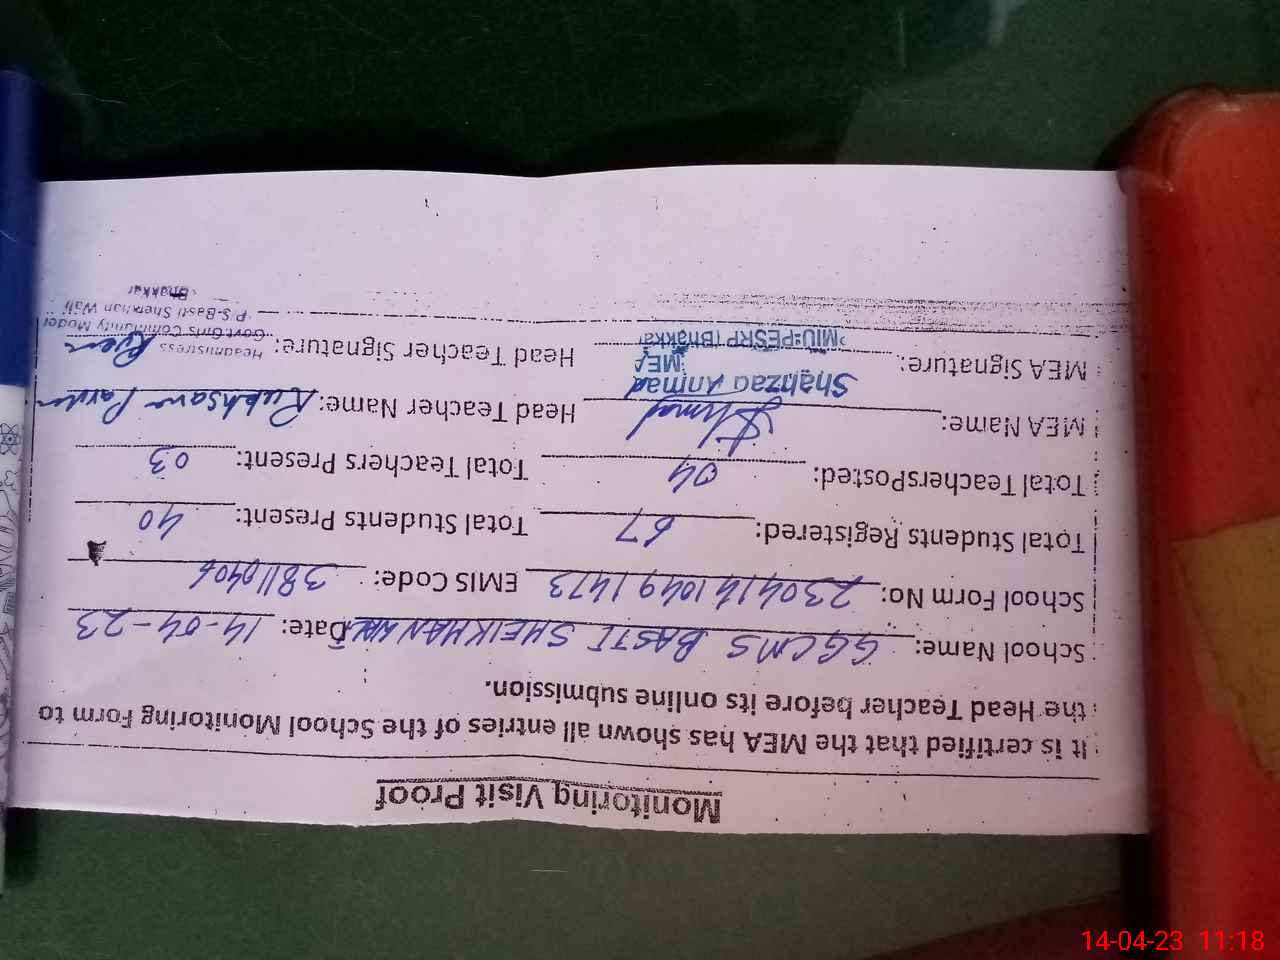 Monitoring Visit Proof
It is certified that the MEA has shown all entries of the School Monitoring Form to
the Head Teacher before its online submission.
School Name: GGCMS BASTI SHEIKHAN Date: 14-04-23
School Form No: EMIS Code:
Total Students Registered: 67 Total Students Present: 40
Total TeachersPosted: 04 Total Teachers Present: 03
MEA Name: Head Teacher Name: Rukhsana Parven
MEA Signature: Head Teacher Signature:
Shahzad Ahmad
MEA
MIU-PESRP (Bhakkar)
Headmistress
Govt Girls Community Model
P.S-Basti Sheikhan Wali
Bhakkar
14-04-23 11:18